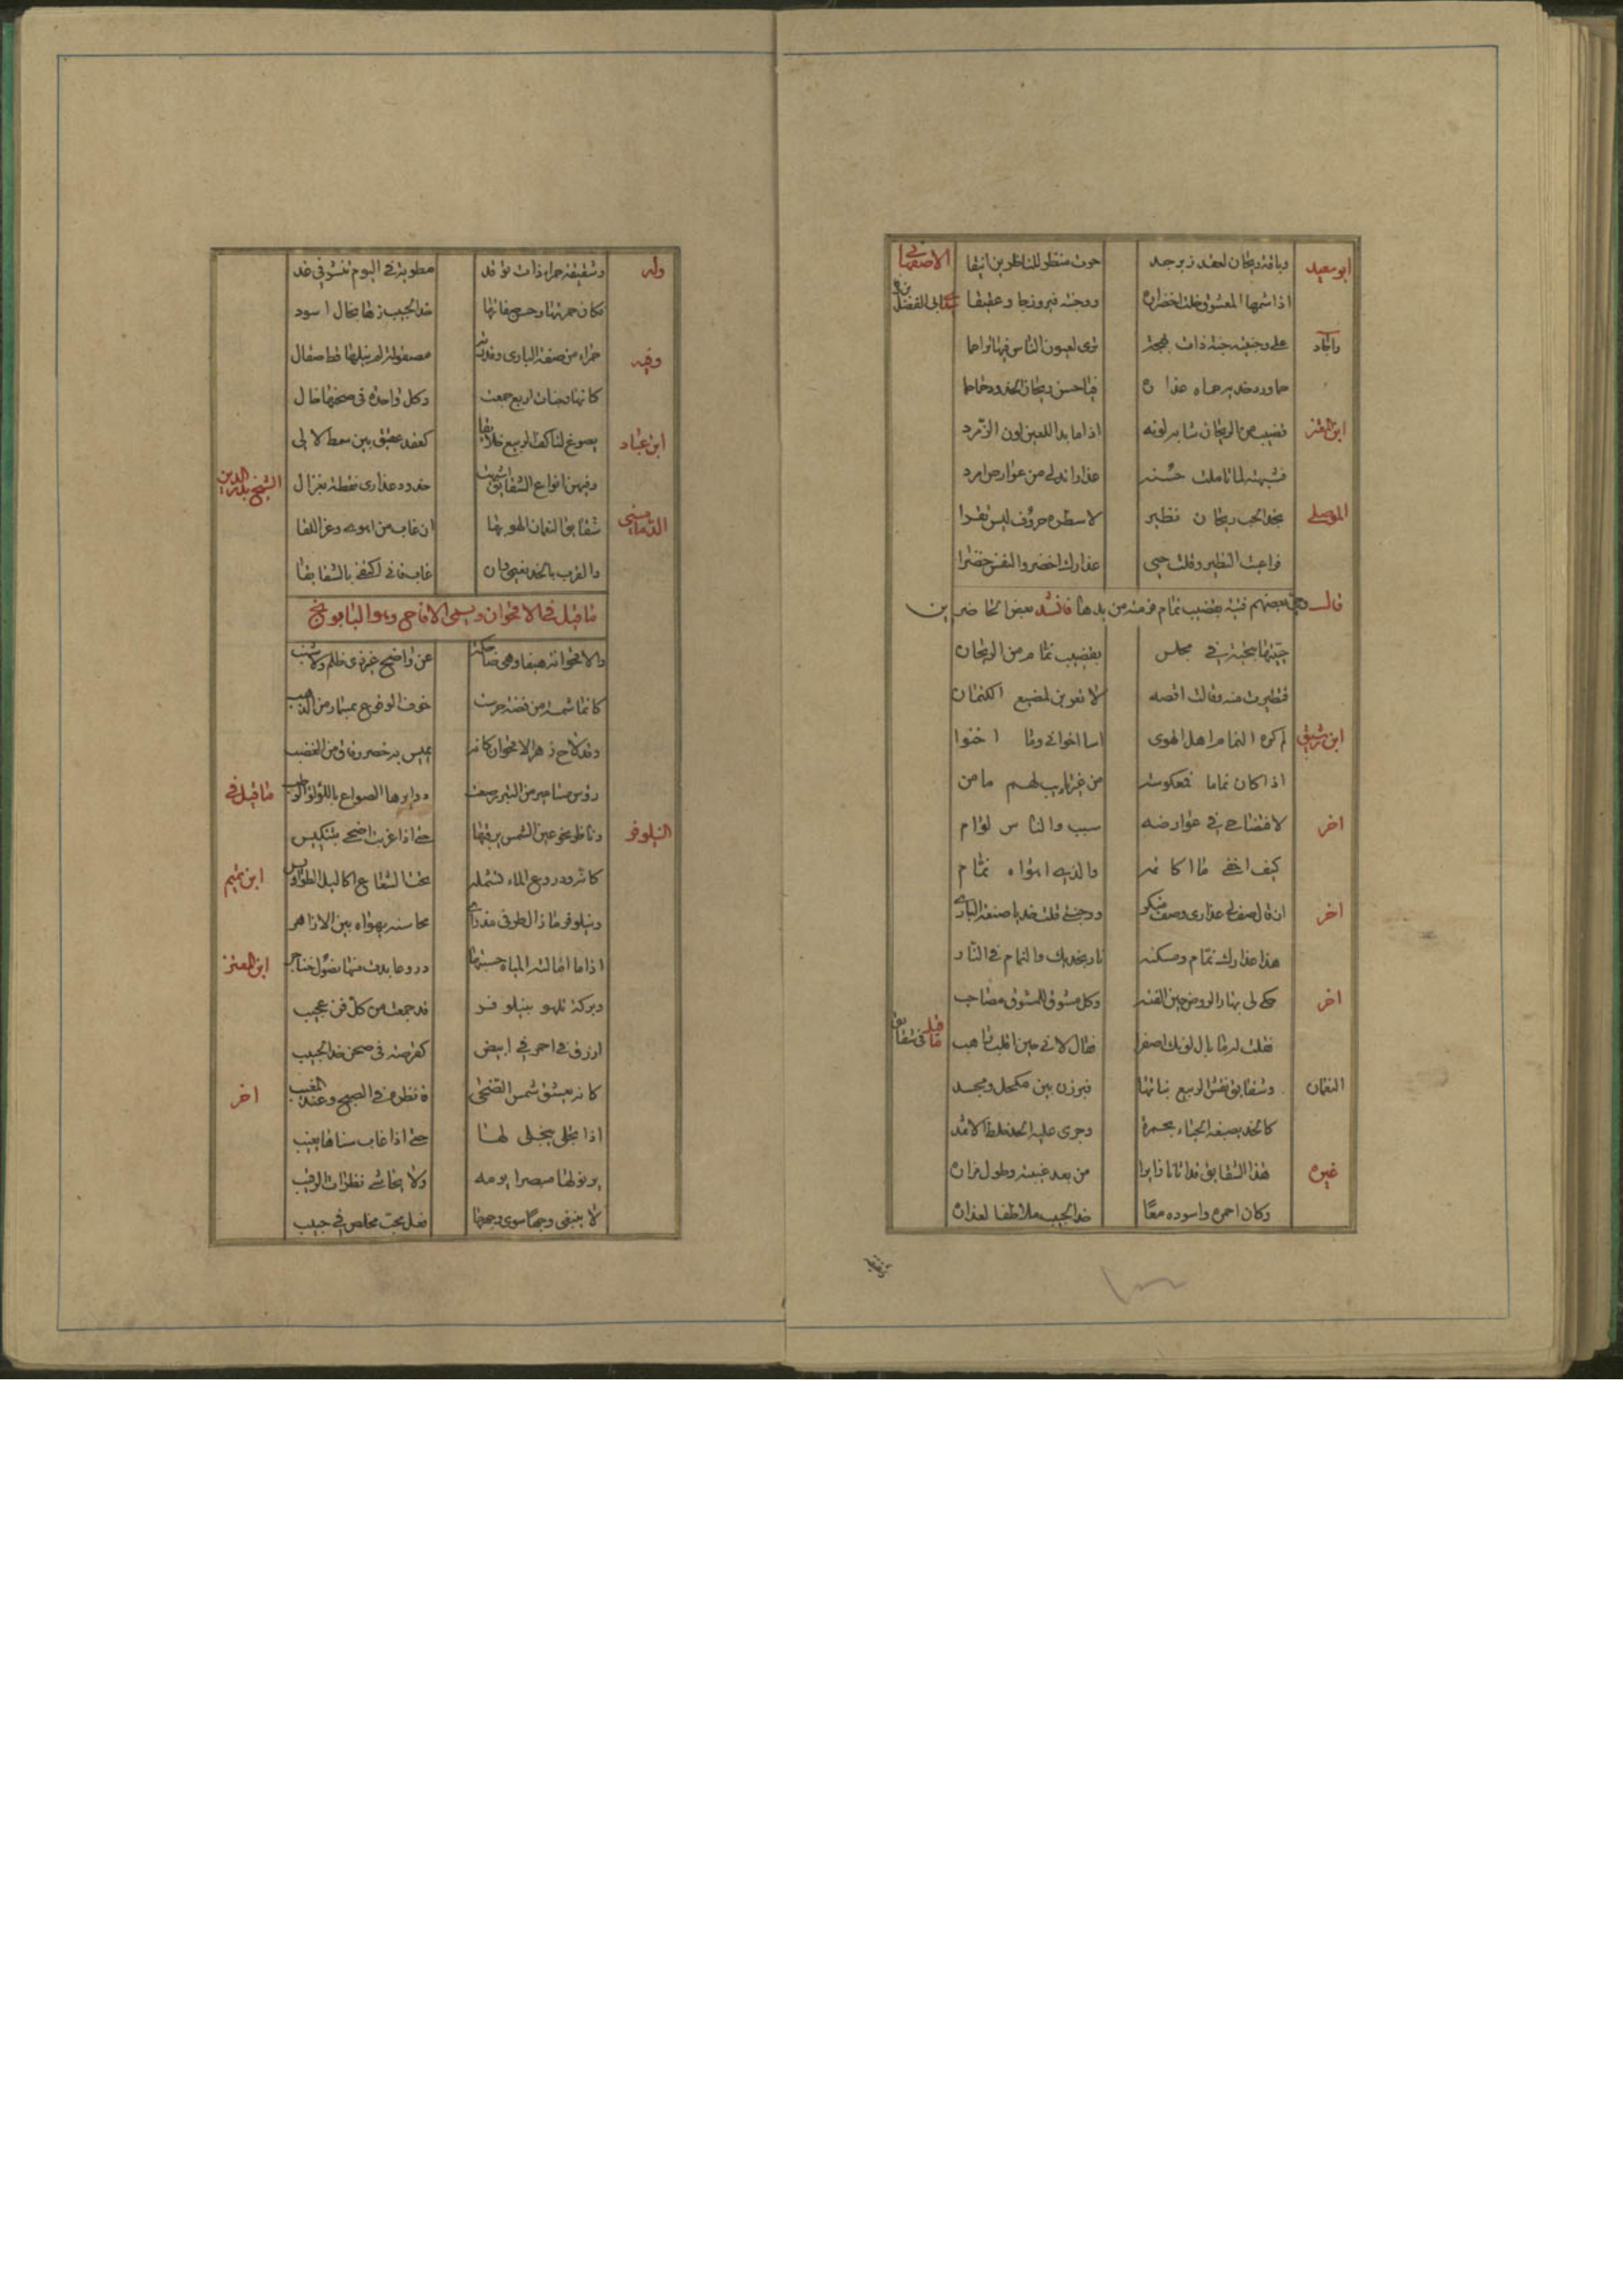 ابو سعيد وباقة ريحان لعقد زبرجد حوت منظرا للناظرين انيقا الاصفهاني
اذا شمها المعشوق خلت اخضرارها ووجنته فيروزجا وعقيقا
على وجنتيه جنة ذات بهجة ترى لعيون الناس فيها تزاحما
حما ورد خديه حماه عذاره فيا حسن ريحان الخدود حماحما
ابن المعتز قضيب من الريحان شابه لونه اذا ما بدا للعين لون الزمرد
فشبهته لما تاملت حسنه عذارا تدلى من عوارض امرد
الموصلي بخد الحب ريحان نظير لاسطره حروف ليس تقرا
فراعيت النظير وقلت حبي عذارك اخضر والنفس خضرا
بعضهم قينة بقضيب نمام من يدها فانشد بعض الحاضرين
حييتها بتحية في مجلس بقضيب نمام من الريحان
فتطيرت منه وقالت اقصه لا تقربن لمضيع الكتمان
ابن رشيق لم كره النمام اهل الهوى اسا اخواني وما احسنوا
اذا كان نماما فمعكوسه من غير تكذيب لهم مامن
اخر لافتضاحي في عوارضه سبب والناس لوام
كيف اخفي ما اكاتمه والذي اهواه نمام
اخر ان قال صف لي عذاري وصف مبتكر ووجنتي قلت خد يا صنعة الباري
هذا عذارك نمام ومسكنه نار بخديك والنمام في النار
اخر حكى لي بهار الروض حين الفته وكل مشوق للمشوق مصاحب
فقلت له ما بال لونك اصفرا فقال لاني حين اقلب راهب ما قيل في شقائق
النعمان وشقايق نقش الربيع نباتها فبرزن بين مكحل ومجسد
كالخد يصبغه الحياء بحمرة وجرى عليه الخد غلط الاثمد
غيره هذا الشقايق قد اتانا زايرا من بعد غيبته وطول مزاره
وكان احمره واسوده معا خد الحبيب ملاطفا لعذاره
وله وشقيقة حمراء ذات توقد مطوية في اليوم تنشر في غد
فكان حمرتها وحسن صفاتها خد الحبيب زها بخال اسود
وفيه حمراء من صنعة الباري وقدرته مصقولة لم ينلها قط صقال
كانها وجنات اربع جمعت وكل واحدة في صحنها خال
ابن عباد يصوغ لنا كف الربيع حدايقا كعقد عقيق بين سمط لالي
وفيهن انواع الشقايق اشبهت خدود عذارى نقطت بغوال الشيخ بدر الدين
الدماميني شقايق النعمان الهو بها ان غاب من اهوى وعز اللقا
والقرب بالخد نعيمي وان غاب فاني اكتفي بالشقايقا
ما قيل في الاقحوان ويسمى الاقاحي وهو البابونج
والاقحوانة هيفا وهي ضاحكة عن واضح غير ذي ظلم ولا شنب
كانها شمسة من فضة حرست خوف الوقوع بمسمار من الذهب
وقد لاح زهر الاقحوان كانه يميس به خصر رقاق من القضب
رؤس مسامير من التبر رصعت دوايرها الصواغ باللؤلؤ الرطب ما قيل في
النيلوفر وناظر نحو عين الشمس يرقبها حتى اذا غربت اضحى بتنكيس
كانه ودروع الماء تشمله تحت الشعاع اكاليل الطواويس ابن تميم
ونيلوفر ما زال طرفي مغرى محاسنه يهواه بين الازاهر
اذا ما اطالته المياه حسبتها دروعا بدت منها نصول خناجر ابن المعتز
وبركة تزهو بنيلوفر قد جمعت من كل فن عجيب
ازرق في احمر في ابيض كقرصة في صحن خد الحبيب
كانه يعشق شمس الضحى فانظره في الصبح وعند المغيب اخر
اذا تجلت يتجلى لها حتى اذا غاب سناها يغيب
يرنو لها مبصرا يومه ولا يخاشى نظرات الرقيب
لا يبتغي وجها سوى وجهها فعل محب مخلص في حبيب